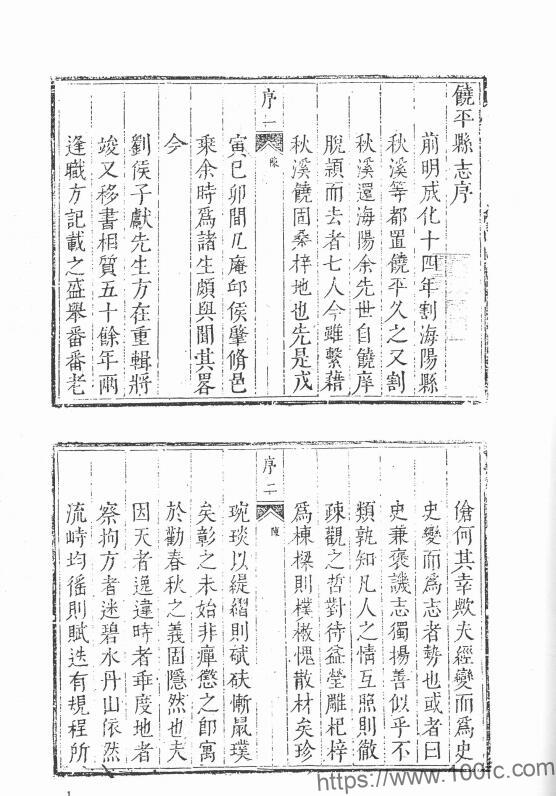 饒平縣志序
前明成化十四年割海陽縣
秋溪等都置饒平久之又割
秋溪還海陽余先世自饒庠
脫穎而去者七人今雖繫藉
秋溪饒固桑梓地也先是戊
序一
陳
寅己卯間几庵邱侯肇脩邑
乘余時爲諸生頗與聞其畧
今
劉侯子獻先生方在重輯將
竣又移書相質五十餘年兩
逢職方記載之盛舉番番老
傖何其幸歟夫經變而爲史
史變而爲志者勢也或者曰
史兼褒譏志獨揚善似乎不
類孰知凡人之情互照則徹
疎觀之哲對待益瑩雕杞梓
爲棟樑則樸樕愧散材矣珍
序二
陳
琬琰以緹縚則碔砆慚最璞
矣彰之未始非癉懲之卽寓
於勸春秋之義固隱然也夫
因天者逸違時者乖度地者
察拘方者迷碧水丹山依然
流峙均徭則賦迭有規程所
1
https://www.100fc.com